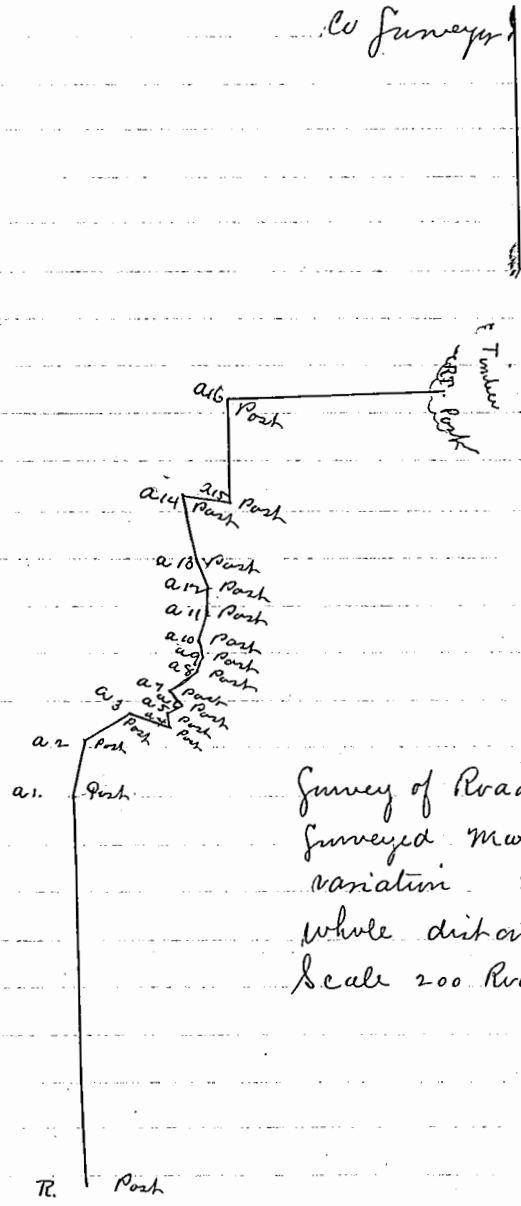 Co Surveyor
& Timber
R.T. Post
a16 Post
a14 Post a15 Post
a13 Post
a12 Post
a11 Post
a10 Post
a9 Post
a8 Post
a7 Post
a6 Post
a5 Post
a4 Post
a3 Post
a2 Post
a1. Post
Survey of Road
Surveyed
variation
whole
Scale 200
R. Post